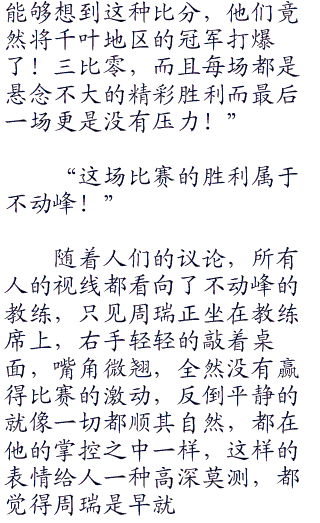 能够想到这种比分，他们竟
然将千叶地区的冠军打爆
了！三比零，而且每场都是
悬念不大的精彩胜利而最后
一场更是没有压力！”
“这场比赛的胜利属于
不动峰！”
随着人们的议论，所有
人的视线都看向了不动峰的
教练，只见周瑞正坐在教练
席上，右手轻轻的敲着桌
面，嘴角微翘，全然没有赢
得比赛的激动，反倒平静的
就像一切都顺其自然，都在
他的掌控之中一样，这样的
表情给人一种高深莫测，都
觉得周瑞是早就